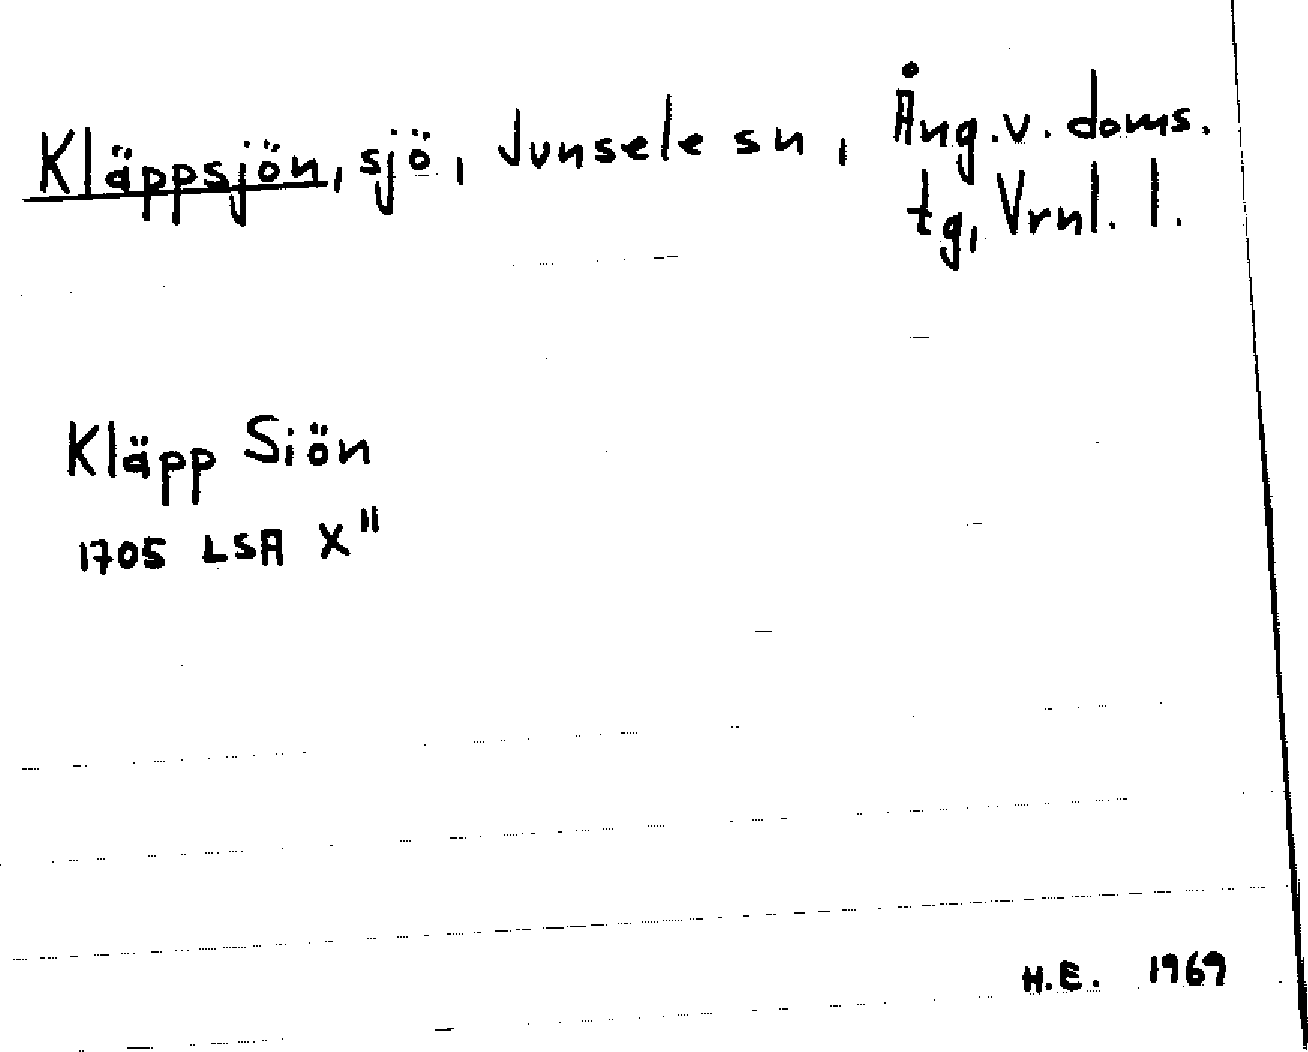 Kläppsjön, sjö, Junsele sn, Ång.v. doms.
tg, Vrnl. l.
Kläpp Siön
1705 LSA X"
H.E. 1969